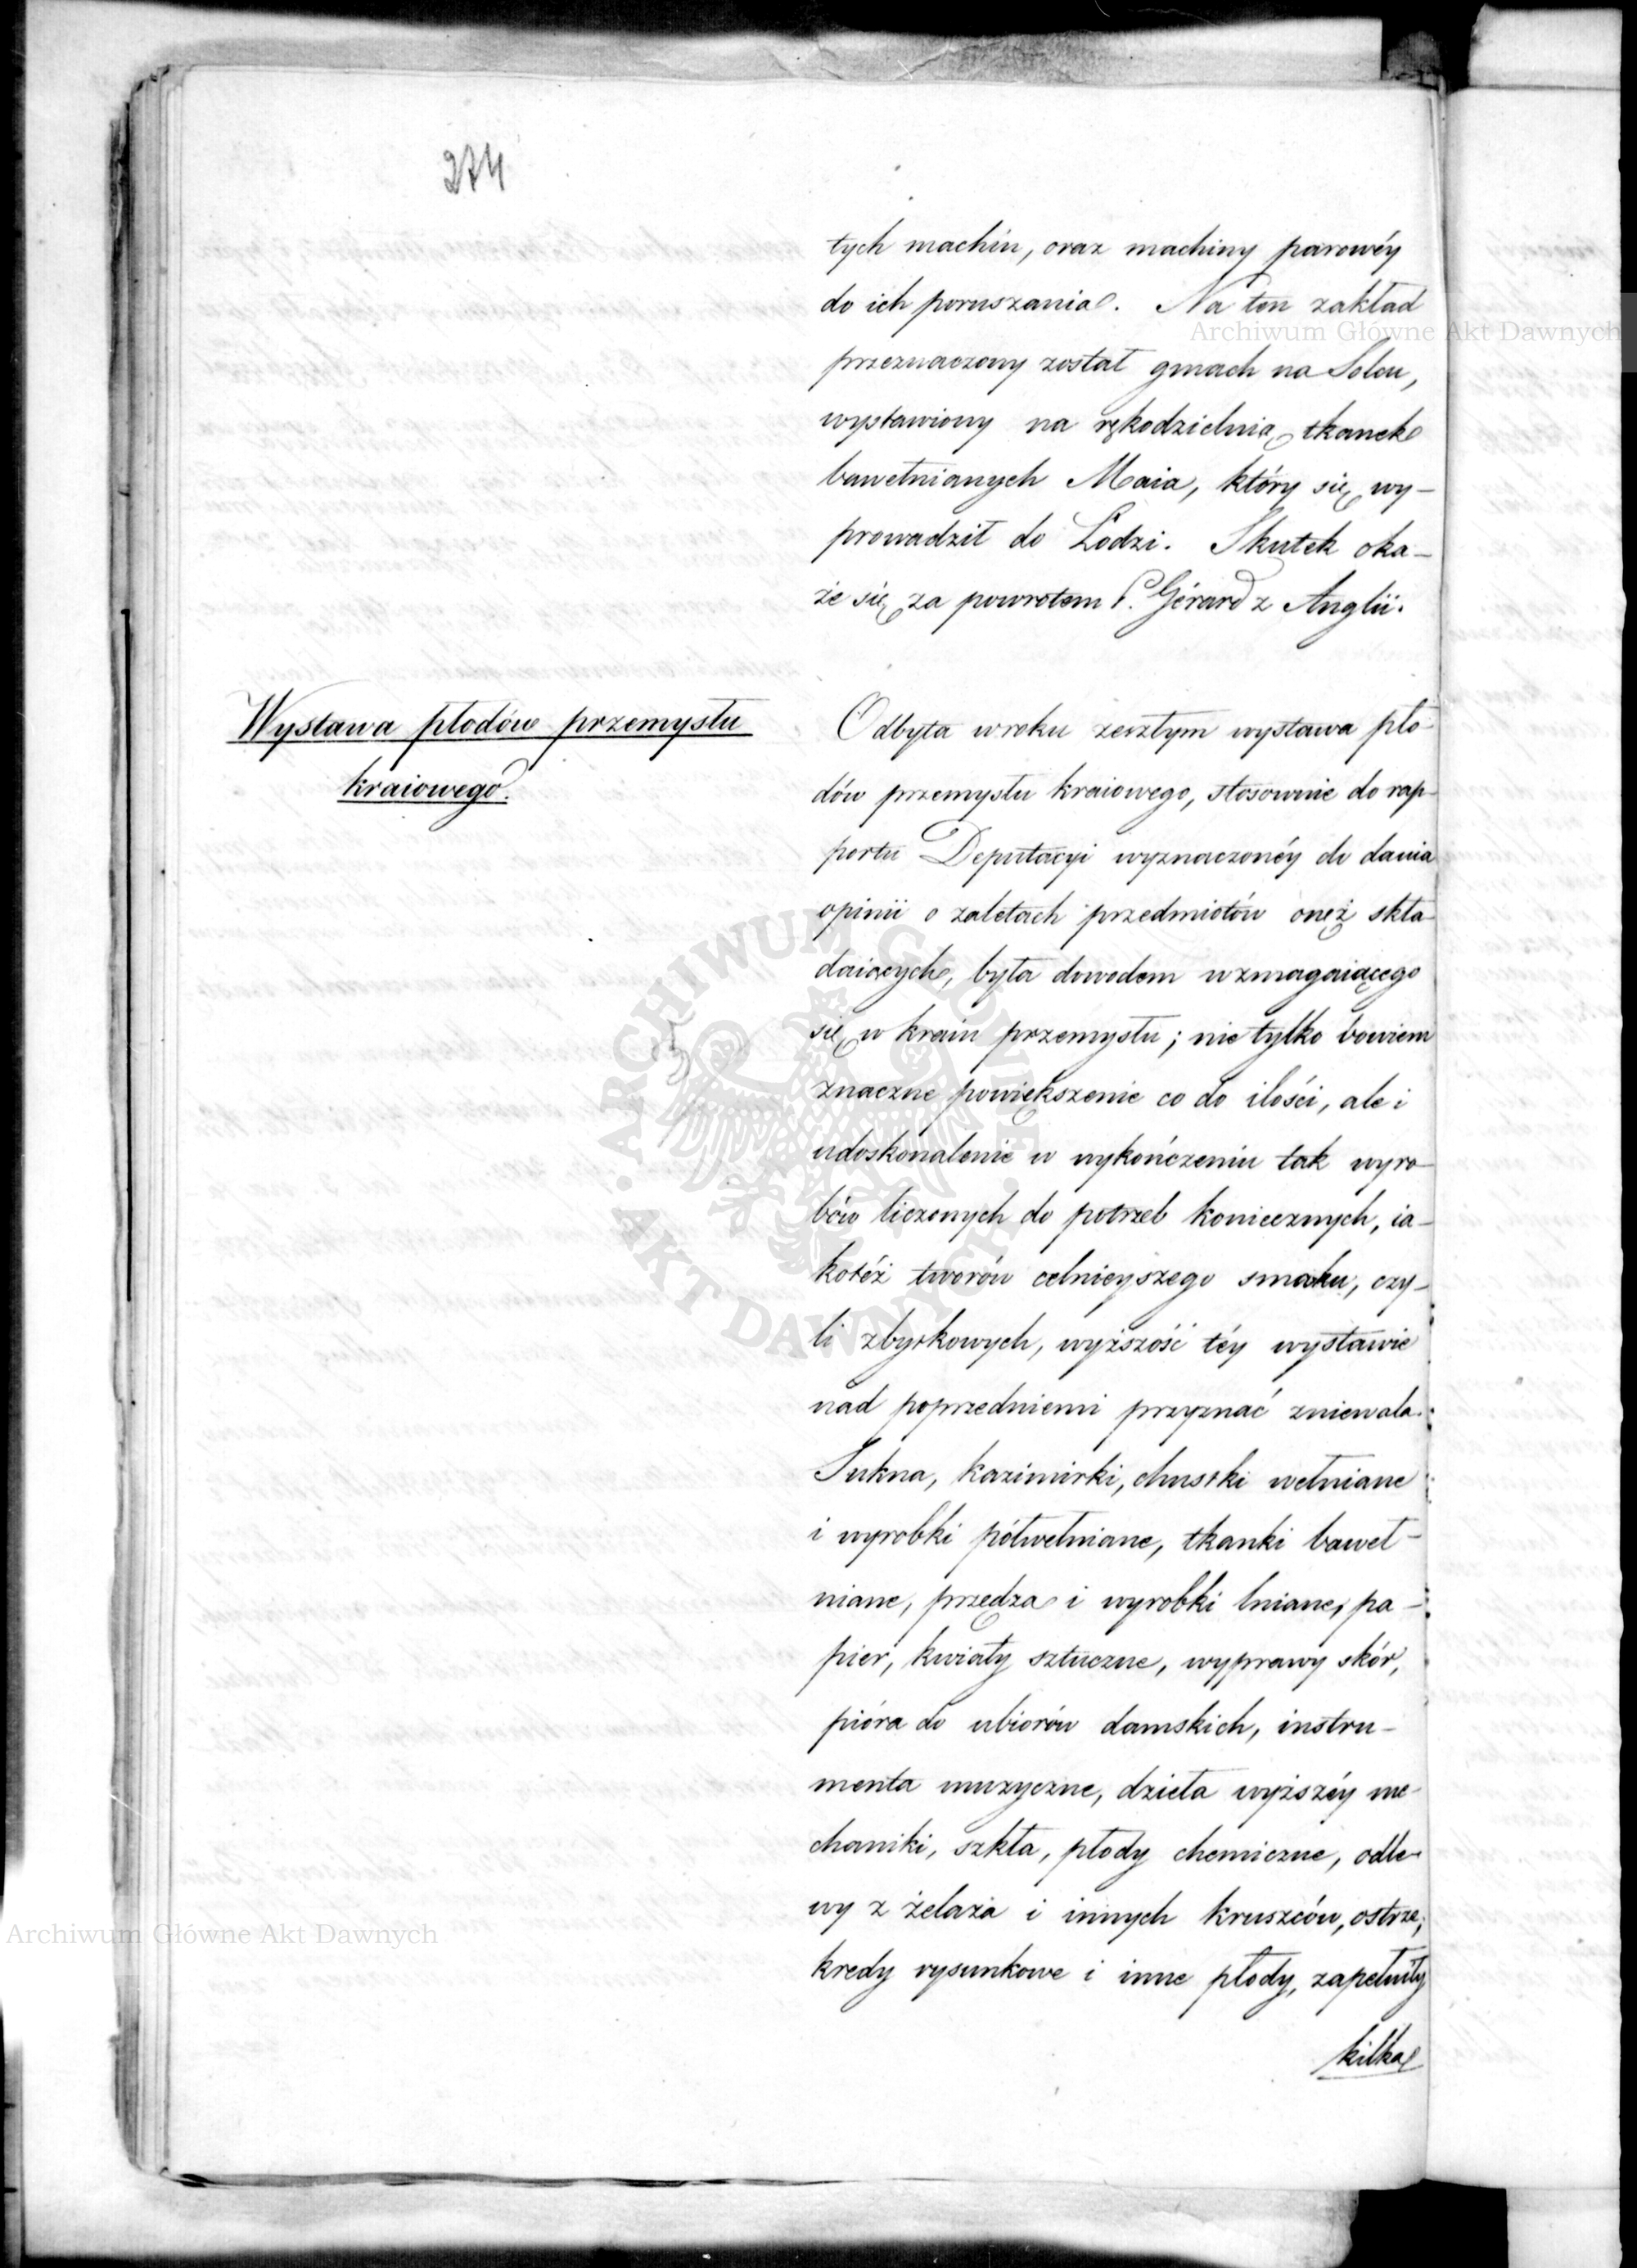 274
tych machin, oraz machiny parowéy
do ich poruszania. Na ten zakład
przeznaczony został gmach na Solcu,
wystawiony na rękodzielnią tkanek
bawełnianych Maia, który się wy-
prowadził do Łodzi. Skutek oka-
że się za powrotem P. Gérard z Anglii.
Wystawa płodów przemysłu
kraiowego.
Odbyta w roku zeszłym wystawa pło-
dów przemysłu kraiowego, stosownie do rap-
portu Deputacyi wyznaczonéy do dania
opinii o zaletach przedmiotów onęż skła-
daiących, była dowodem wzmagaiącego
się w kraiu przemysłu; nie tylko bowiem
znaczne powiększenie co do ilości, ale i
udoskonalenie w wykończeniu tak wyro-
bów liczonych do potrzeb koniecznych, ia-
kotéż tworów celnieyszego smaku, czy-
li zbytkowych, wyższość téy wystawie
nad poprzedniemi przyznać zniewala.
Sukna, kazimirki, chustki wełniane
i wyrobki półwełniane, tkanki baweł-
niane, przędza i wyrobki lniane, pa-
pier, kwiaty sztuczne, wyprawy skór,
pióra do ubiorów damskich, instru-
menta muzyczne, dzieła wyższéy me-
chaniki, szkła, płody chemiczne, odle-
wy z żelaza i innych kruszców, ostrze,
kredy rysunkowe i inne płody, zapełniły
kilka
Archiwum Główne Akt Dawnych
Archiwum Główne Akt Dawnych
ARCHIWUM GŁÓWNE
AKT DAWNYCH